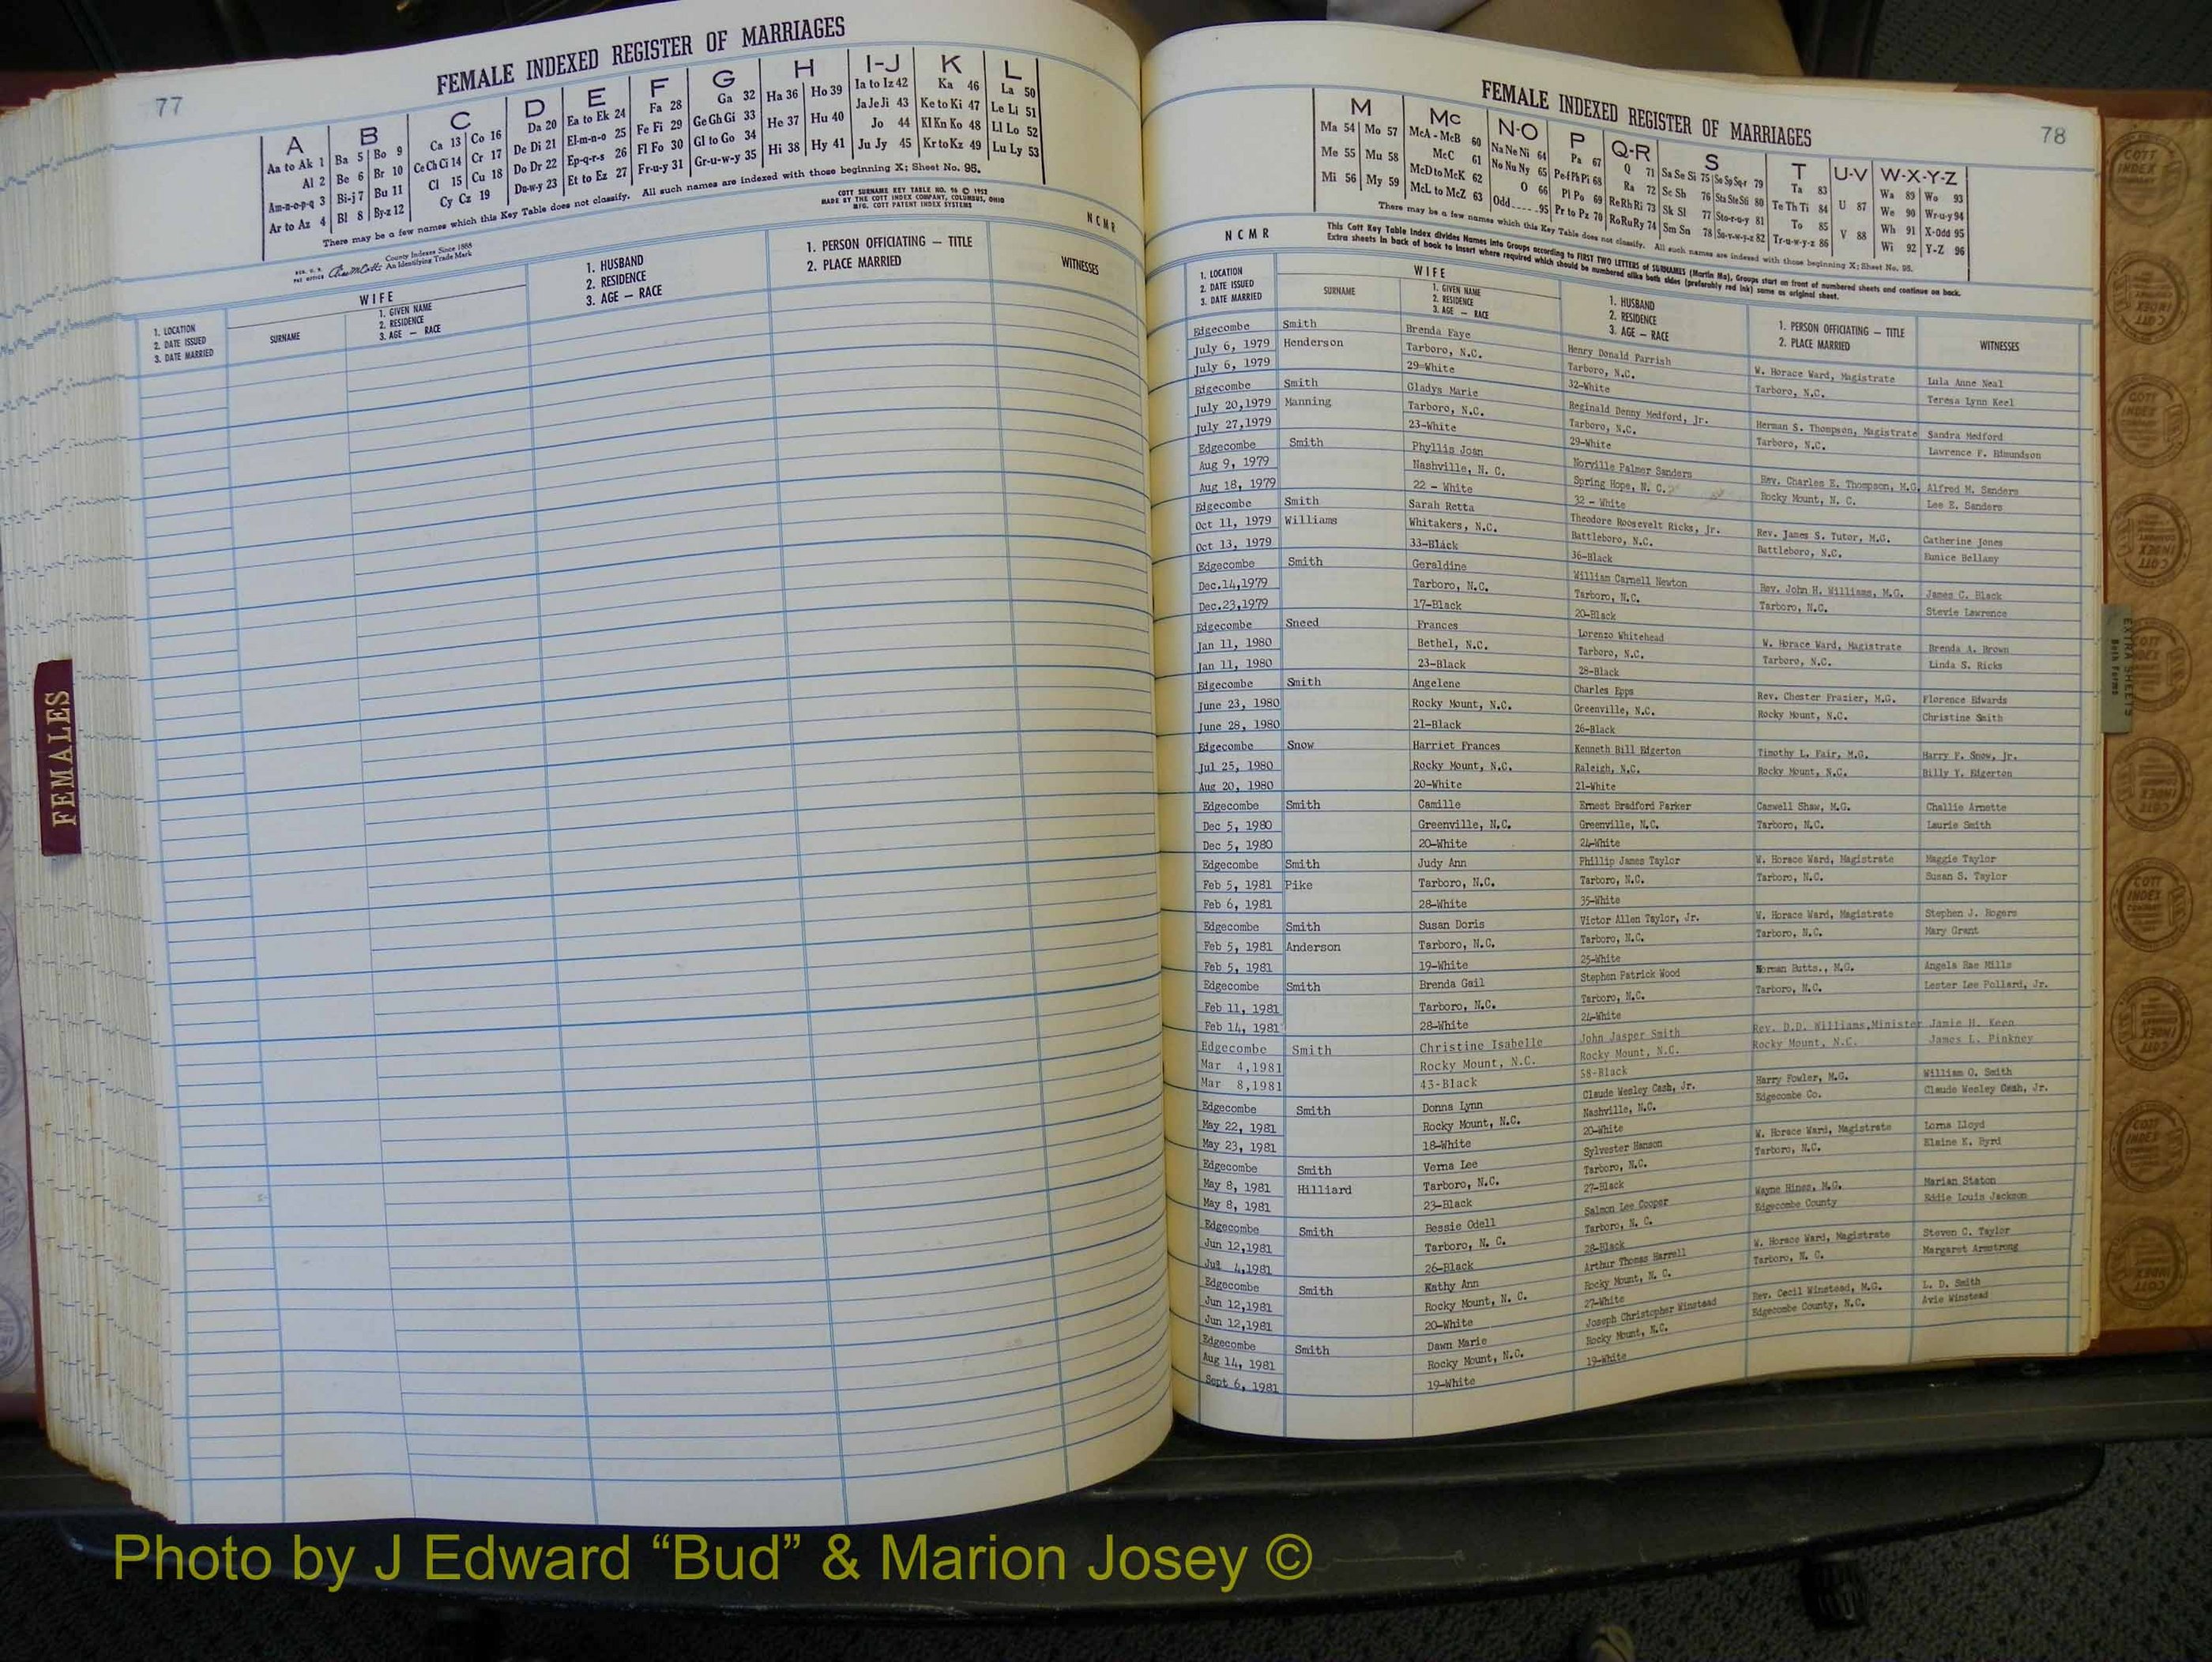 77
FEMALE INDEXED REGISTER OF MARRIAGES
A B C D E F G H I-J K L
Aa to Ak 1 Ba 5 Bo 9 Ca 13 Co 16 Da 20 Ea to Ek 24 Fa 28 Ga 32 Ha 36 Ho 39 Ia to Iz 42 Ka 46 La 50
Al 2 Be 6 Br 10 Ce Ch Ci 14 Cr 17 De Di 21 El-m-n-o 25 Fe Fi 29 Ge Gh Gi 33 He 37 Hu 40 Ja Je Ji 43 Ke to Ki 47 Le Li 51
Am-n-o-p-q 3 Bi-j 7 Bu 11 Cl 15 Cu 18 Do Dr 22 Ep-q-r-s 26 Fl Fo 30 Gl to Go 34 Hi 38 Hy 41 Jo 44 Kl Kn Ko 48 Ll Lo 52
Ar to Az 4 Bl 8 By-z 12 Cy Cz 19 Du-w-y 23 Et to Ez 27 Fr-u-y 31 Gr-u-w-y 35 Ju Jy 45 Kr to Kz 49 Lu Ly 53
There may be a few names which this Key Table does not classify. All such names are indexed with those beginning X; Sheet No. 95.
COTT SURNAME KEY TABLE NO. 96 © 1952
MADE BY THE COTT INDEX COMPANY, COLUMBUS, OHIO
MFG. COTT PATENT INDEX SYSTEMS
County Indexes Since 1888
An Identifying Trade Mark
NCMR
1. LOCATION
2. DATE ISSUED
3. DATE MARRIED
WIFE
SURNAME
1. GIVEN NAME
2. RESIDENCE
3. AGE — RACE
1. HUSBAND
2. RESIDENCE
3. AGE — RACE
1. PERSON OFFICIATING — TITLE
2. PLACE MARRIED
WITNESSES
FEMALES
78
FEMALE INDEXED REGISTER OF MARRIAGES
M Mc N-O P Q-R S T U-V W-X-Y-Z
Ma 54 Mo 57 McA - McB 60 Na Ne Ni 64 Pa 67 Q 71 Sa Se Si 75 So Sp Sq-r 79 Ta 83 U 87 Wa 89 Wo 93
Me 55 Mu 58 McC 61 No Nu Ny 65 Pe-f Ph Pi 68 Ra 72 Sc Sh 76 Sta Ste Sti 80 Te Th Ti 84 We 90 Wr-u-y 94
Mi 56 My 59 McD to McK 62 O 66 Pl Po 69 Re Rh Ri 73 Sk Sl 77 Sto-r-u-y 81 To 85 V 88 Wh 91 X-Odd 95
McL to McZ 63 Odd 95 Pr to Pz 70 Ro Ru Ry 74 Sm Sn 78 Su-v-w-y-z 82 Tr-u-w-y-z 86 Wi 92 Y-Z 96
There may be a few names which this Key Table does not classify. All such names are indexed with those beginning X; Sheet No. 95.
This Cott Key Table Index divides Names into Groups according to FIRST TWO LETTERS of SURNAMES (Martin Ma). Groups start on front of numbered sheets and continue on back.
Extra sheets in back of book to insert where required which should be numbered alike both sides (preferably red ink) same as original sheet.
NCMR
1. LOCATION
2. DATE ISSUED
3. DATE MARRIED
WIFE
SURNAME
1. GIVEN NAME
2. RESIDENCE
3. AGE — RACE
1. HUSBAND
2. RESIDENCE
3. AGE — RACE
1. PERSON OFFICIATING — TITLE
2. PLACE MARRIED
WITNESSES
Edgecombe Smith Brenda Faye Henry Donald Parrish W. Horace Ward, Magistrate Lula Anne Neal
July 6, 1979 Henderson Tarboro, N.C. Tarboro, N.C. Tarboro, N.C. Teresa Lynn Keel
July 6, 1979 29-White 32-White
Edgecombe Smith Gladys Marie Reginald Denny Medford, Jr. Herman S. Thompson, Magistrate Sandra Medford
July 20,1979 Manning Tarboro, N.C. Tarboro, N.C. Tarboro, N.C. Lawrence F. Edmundson
July 27,1979 23-White 29-White
Edgecombe Smith Phyllis Joan Norville Palmer Sanders Rev. Charles E. Thompson, M.G. Alfred M. Sanders
Aug 9, 1979 Nashville, N. C. Spring Hope, N. C. Rocky Mount, N. C. Lee E. Sanders
Aug 18, 1979 22 - White 32 - White
Edgecombe Smith Sarah Retta Theodore Roosevelt Ricks, Jr. Rev. James S. Tutor, M.G. Catherine Jones
Oct 11, 1979 Williams Whitakers, N.C. Battleboro, N.C. Battleboro, N.C. Eunice Bellamy
Oct 13, 1979 33-Black 36-Black
Edgecombe Smith Geraldine William Carnell Newton Rev. John H. Williams, M.G. James C. Black
Dec.14,1979 Tarboro, N.C. Tarboro, N.C. Tarboro, N.C. Stevie Lawrence
Dec.23,1979 17-Black 20-Black
Edgecombe Sneed Frances Lorenzo Whitehead W. Horace Ward, Magistrate Brenda A. Brown
Jan 11, 1980 Bethel, N.C. Tarboro, N.C. Tarboro, N.C. Linda S. Ricks
Jan 11, 1980 23-Black 28-Black
Edgecombe Smith Angelene Charles Epps Rev. Chester Frazier, M.G. Florence Edwards
June 23, 1980 Rocky Mount, N.C. Greenville, N.C. Rocky Mount, N.C. Christine Smith
June 28, 1980 21-Black 26-Black
Edgecombe Snow Harriet Frances Kenneth Bill Edgerton Timothy L. Fair, M.G. Harry F. Snow, Jr.
Jul 25, 1980 Rocky Mount, N.C. Raleigh, N.C. Rocky Mount, N.C. Billy Y. Edgerton
Aug 20, 1980 20-White 21-White
Edgecombe Smith Camille Ernest Bradford Parker Caswell Shaw, M.G. Challie Arnette
Dec 5, 1980 Greenville, N.C. Greenville, N.C. Tarboro, N.C. Laurie Smith
Dec 5, 1980 20-White 24-White
Edgecombe Smith Judy Ann Phillip James Taylor W. Horace Ward, Magistrate Maggie Taylor
Feb 5, 1981 Pike Tarboro, N.C. Tarboro, N.C. Tarboro, N.C. Susan S. Taylor
Feb 6, 1981 28-White 35-White
Edgecombe Smith Susan Doris Victor Allen Taylor, Jr. W. Horace Ward, Magistrate Stephen J. Rogers
Feb 5, 1981 Anderson Tarboro, N.C. Tarboro, N.C. Tarboro, N.C. Mary Grant
Feb 5, 1981 19-White 25-White
Edgecombe Smith Brenda Gail Stephen Patrick Wood Norman Butts., M.G. Angela Rae Mills
Feb 11, 1981 Tarboro, N.C. Tarboro, N.C. Tarboro, N.C. Lester Lee Pollard, Jr.
Feb 14, 1981 28-White 24-White
Edgecombe Smith Christine Isabelle John Jasper Smith Rev. D.D. Williams,Minister Jamie H. Keen
Mar 4,1981 Rocky Mount, N.C. Rocky Mount, N.C. Rocky Mount, N.C. James L. Pinkney
Mar 8,1981 43-Black 58-Black
Edgecombe Smith Donna Lynn Claude Wesley Cash, Jr. Harry Fowler, M.G. William O. Smith
May 22, 1981 Rocky Mount, N.C. Nashville, N.C. Edgecombe Co. Claude Wesley Cash, Jr.
May 23, 1981 18-White 20-White
Edgecombe Smith Verna Lee Sylvester Hanson W. Horace Ward, Magistrate Lorna Lloyd
May 8, 1981 Hilliard Tarboro, N.C. Tarboro, N.C. Tarboro, N.C. Elaine K. Byrd
May 8, 1981 23-Black 27-Black
Edgecombe Smith Bessie Odell Salmon Lee Cooper Wayne Hines, M.G. Marian Staton
Jun 12,1981 Tarboro, N. C. Tarboro, N. C. Edgecombe County Eddie Louis Jackson
4,1981 26-Black 28-Black
Edgecombe Smith Kathy Ann Arthur Thomas Harrell W. Horace Ward, Magistrate Steven C. Taylor
Jun 12,1981 Rocky Mount, N. C. Rocky Mount, N. C. Tarboro, N. C. Margaret Armstrong
Jun 12,1981 20-White 27-White
Edgecombe Smith Dawn Marie Joseph Christopher Winstead Rev. Cecil Winstead, M.G. L. D. Smith
Aug 14, 1981 Rocky Mount, N.C. Rocky Mount, N.C. Edgecombe County, N.C. Avie Winstead
Sept 6, 1981 19-White 19-White
EXTRA SHEETS
Both Forms
Photo by J Edward “Bud” & Marion Josey ©